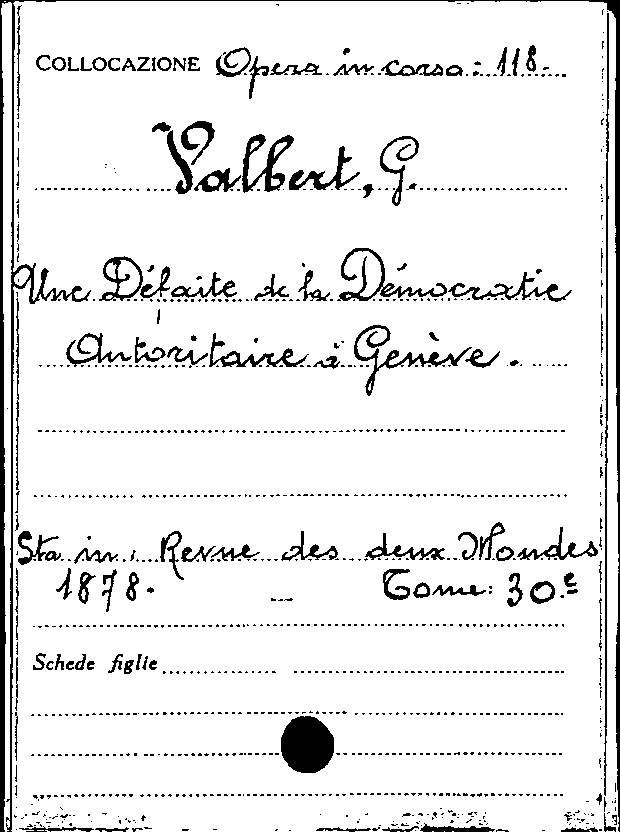 COLLOCAZIONE Opera in corso: 118.
Valbert, G.
Une Défaite de la Démocratie
Autoritaire à Genève.
Sta in: Revue des deux Mondes
1878. — Tome: 30.e
Schede figlie